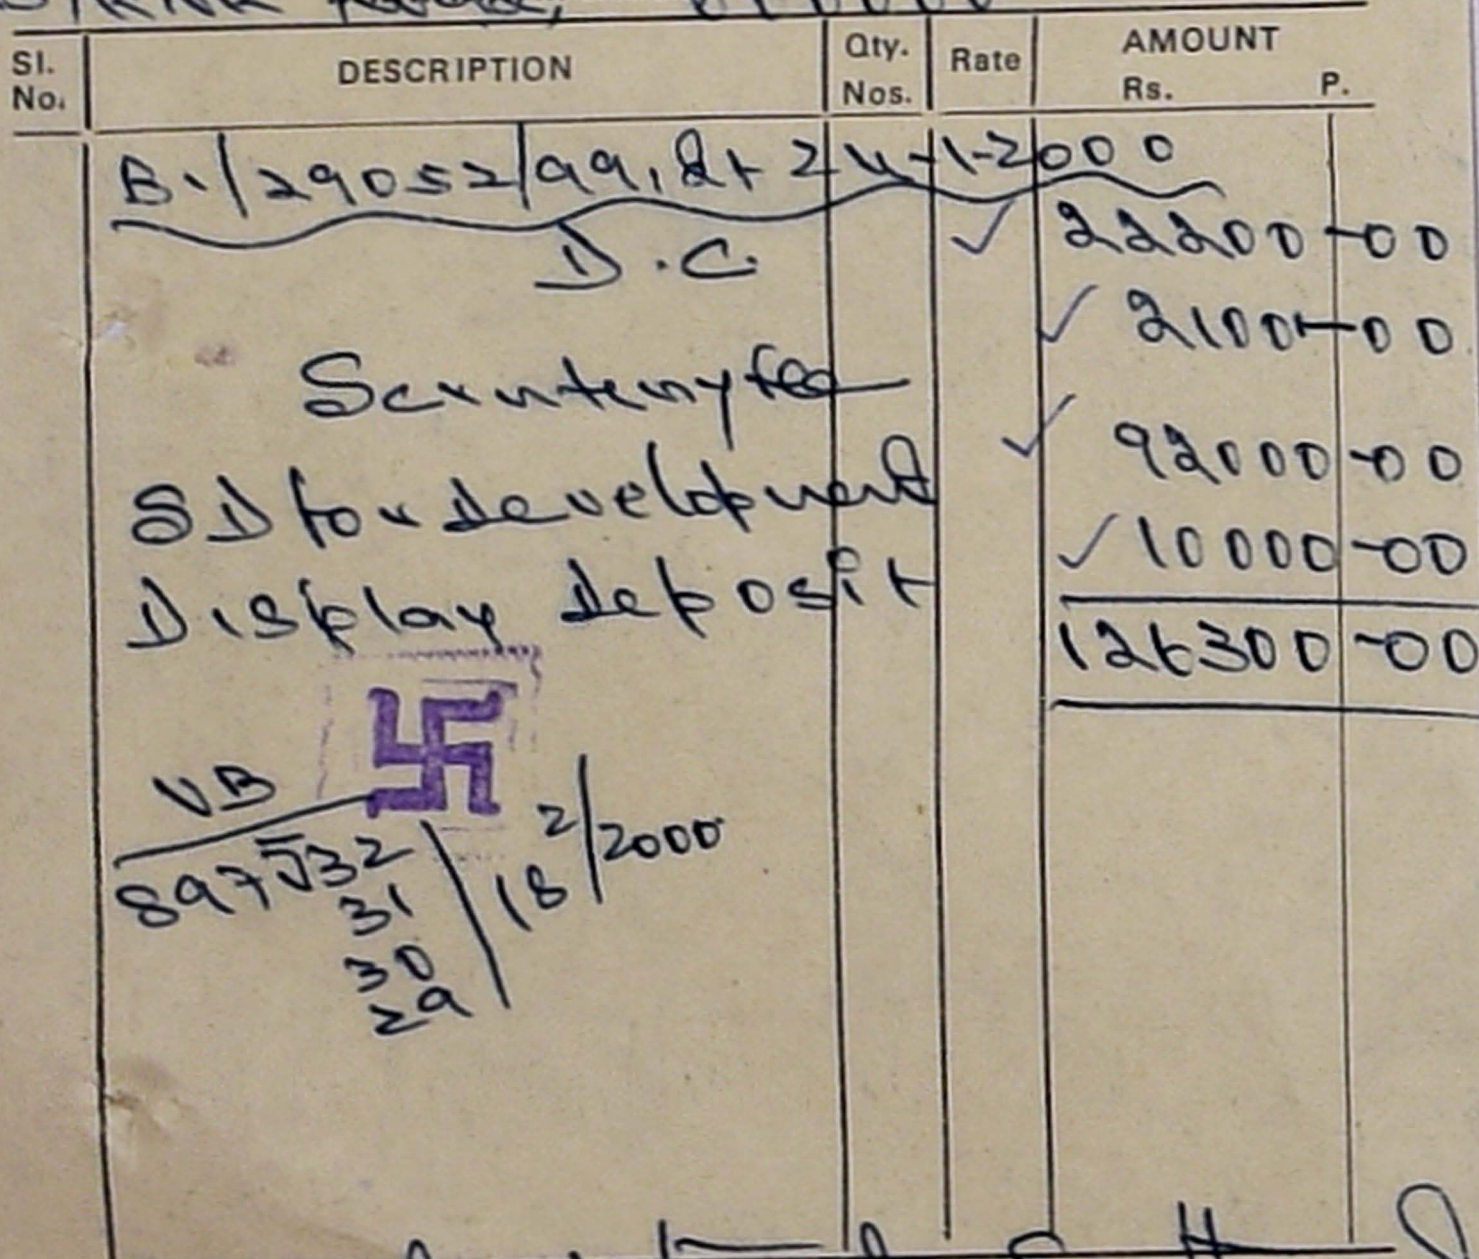 Sl. No. DESCRIPTION Qty. Nos. Rate AMOUNT Rs. P.
B1/29052/99, dt 24-1-2000
D.C. 22200-00
Scrutenyfee 2100-00
SD for development 92000-00
Display deposit 10000-00
126300-00
VB
897532 18/2/2000
31
30
29